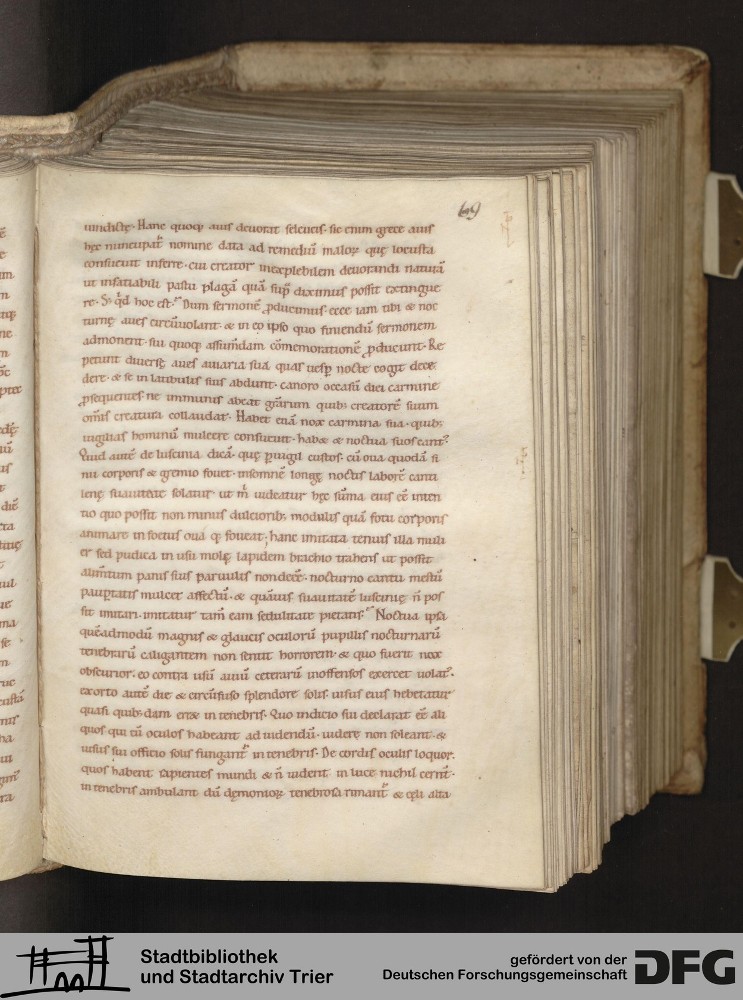 69
uindictę. Hanc quoq; auis deuorat seleucis. sic enim grece auis
hęc nuncupat᷑ nomine data ad remediū maloꝝ quę locusta
consueuit inferre. cui creator inexplebilem deuorandi naturā
ut insatiabili pastu plagā quā sup̄ diximus possit extingue
re. S; qd̄ hoc est. Dum sermonē ꝓducimus. ecce iam tibi & noc
turnę aues circūuolant. & in eo ipso quo finiendū sermonem
admonent. sui quoq; assum̄dam cōmemorationē ꝓducunt. Re
petunt diuersę aues auiaria sua quas uesp̄ nocte cogit dece
dere. & se in latibulis suis abdunt. canoro occasū diei carmine
ꝓsequentes. ne immunis abeat gr̄arum quib; creatorē suum
om̄is creatura collaudat. Habet etiā nox carmina sua. quib;
uigilias hominū mulcere consueuit. habet & noctua suos cant᷒.
Quid autē de luscinia dicā. quę p̱uigil custos. cū oua quodā si
nu corporis & gremio fouet. insomnē longę noctis laborē canti
lenę suauitate solatur. ut m̄ uideatur hęc sūma eius eē inten
tio quo possit non minus dulciorib; modulis quā fotu corporis
animare in foetus oua q̨ foueat. hanc imitata tenuis illa muli
er sed pudica in usu molę lapidem brachio trahens ut possit
alim̄tum panis suis paruulis non deeē. nocturno cantu mestū
paup̱tatis mulcet affectū. & quāuis suauitatē luscinię n̄ pos
sit imitari. imitatur tam̄ eam sedulitate pietatis. Noctua ipsa
quēadmodū magnis & glaucis oculorū pupillis nocturnarū
tenebrarū caligantem non sentit horrorem & quo fuerit nox
obscurior. eo contra usū auiū ceterarū inoffensos exercet uolat᷒.
exorto autē die & circūfuso splendore solis. uisus eius hebetatur
quasi quib;dam erret in tenebris. Quo indicio sui declarat eē ali
quos qui cū oculos habeant ad uidendū. uidere non soleant. &
uisus sui officio solis fungant᷑ in tenebris. De cordis oculis loquor.
quos habent sapientes mundi & n̄ uident. in luce nichil cernt̄.
in tenebris ambulant dū dęmonioꝝ tenebrosa rimant᷑ & cęli alta
Stadtbibliothek
und Stadtarchiv Trier
gefördert von der
Deutschen Forschungsgemeinschaft
DFG